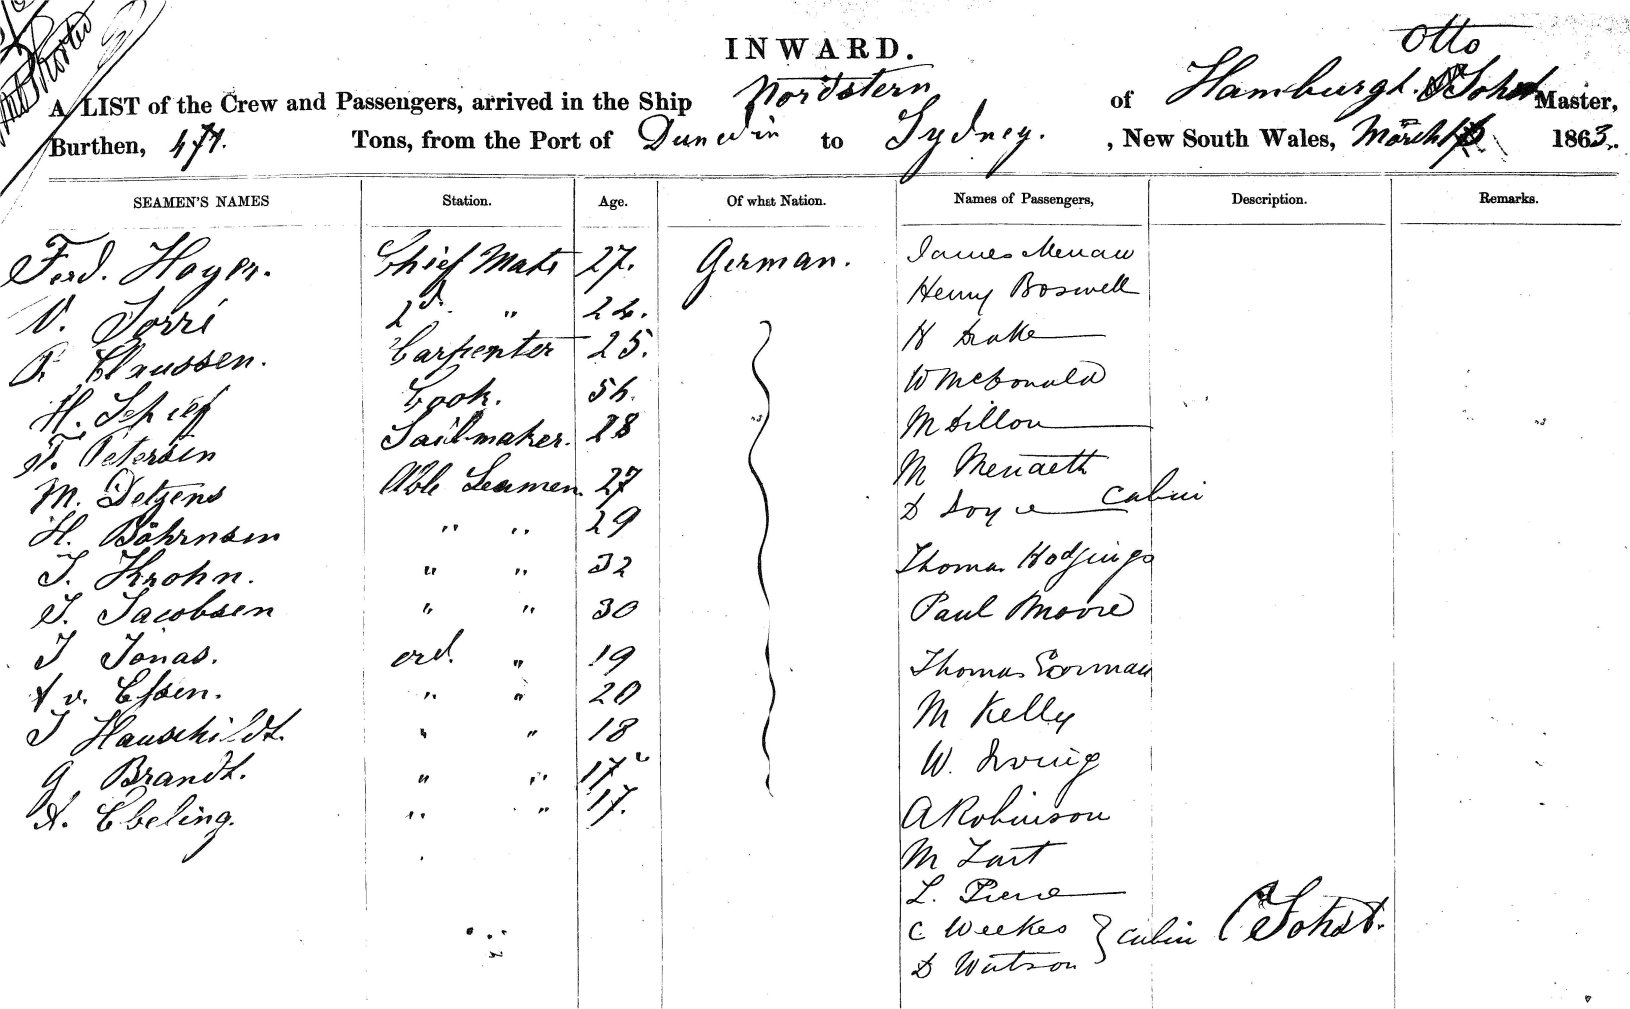 INWARD.
Otto
A LIST of the Crew and Passengers, arrived in the Ship Nordstern of Hamburgh. Sohst Master,
Burthen, 477. Tons, from the Port of Dunedin to Sydney. , New South Wales, March 1863.
SEAMEN'S NAMES Station. Age. Of what Nation. Names of Passengers, Description. Remarks.
Ferd. Hoyer. Chief Mate 27. German. James
2d. " 24. Henry Boswell
Claussen. Carpenter 25. H Drake
H. Cook. 56. W McDonald
Petersen Sailmaker. 28 M Dillon
M. Detzens Able Seamen 27 M
H. Böhrnsen " " 29 D Doyle Cabin
J. Krohn. " " 32 Thomas Hodgings
J. Jacobsen " " 30 Paul Moore
J Jonas. ord. " 19 Thomas Gorman
v. Essen. " " 20 M Kelly
J Hauschildt. " " 18 W. Irving
G. Brandt. " " 17 A Robinson
A. Ebeling. " " 17. M Tart
L.
C Weekes Cabin Sohst.
D Watson